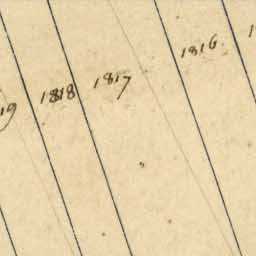 19 1818 1817 1816